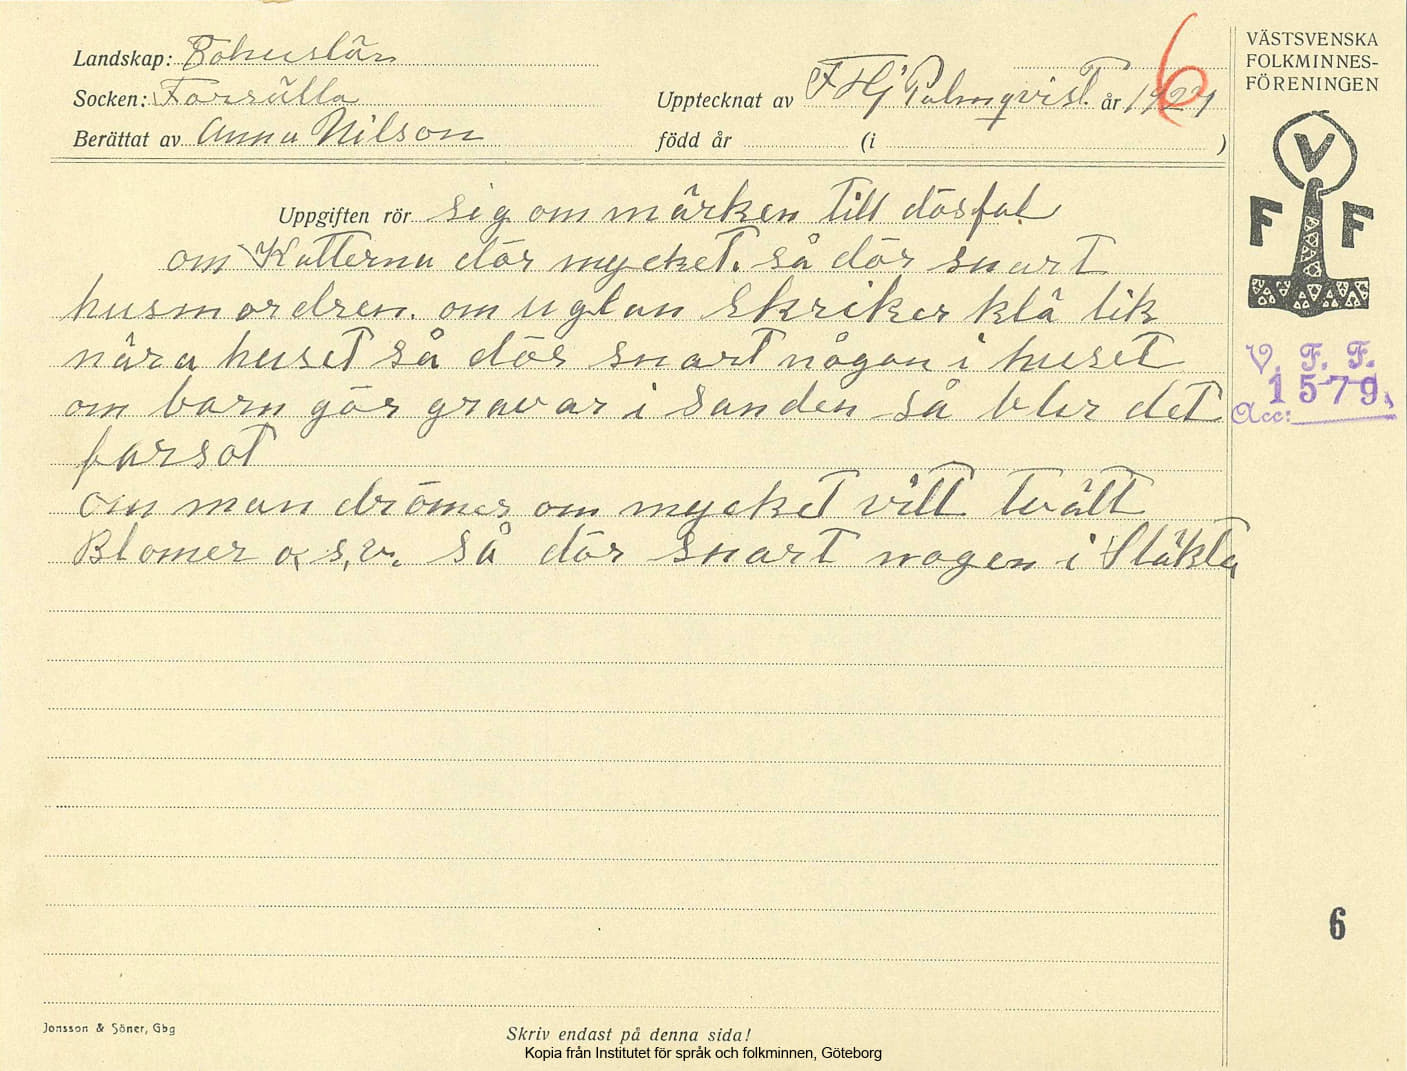 Landskap: Bohuslän
Socken: Forsälla
Berättat av Anna Nilson
Upptecknat av F Hj Palmqvist. år 1927
6
född år (i )
VÄSTSVENSKA
FOLKMINNES-
FÖRENINGEN
V
F F
Uppgiften rör sig om märken till dösfal
om Katterna dör mycket. så dör snart
husmordren. om uglan skriker klä lik
nära huset så dör snart någon i huset
om barn gör gravar i sanden så blir det
farsot
om man drömer om mycket vitt tvätt
Blomer o, s, v. så dör snart nogen i Släkta
V. F. F.
1579.
Acc:
6
Jonsson & Söner, Gbg
Skriv endast på denna sida!
Kopia från Institutet för språk och folkminnen, Göteborg